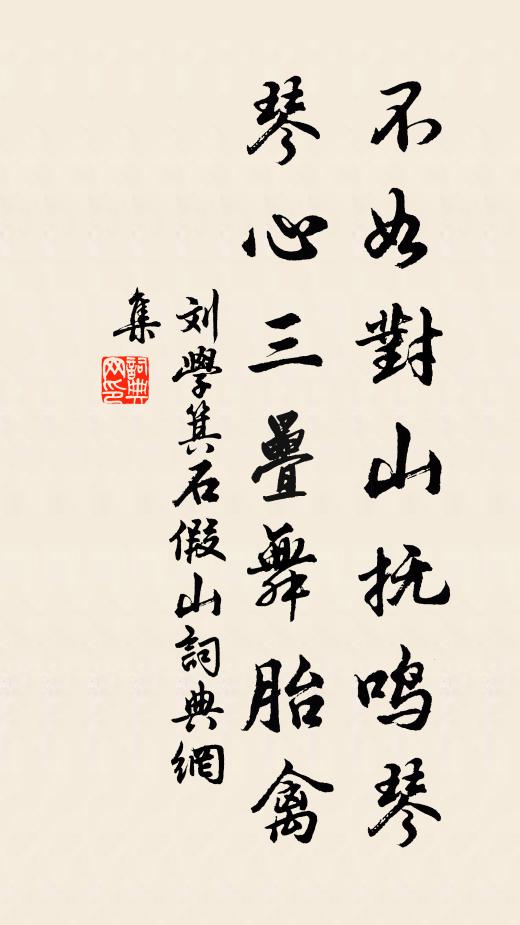 不如對山抚鸣琴
琴心三疊舞胎禽
刘學箕石假山詞典網
集
詞典网印